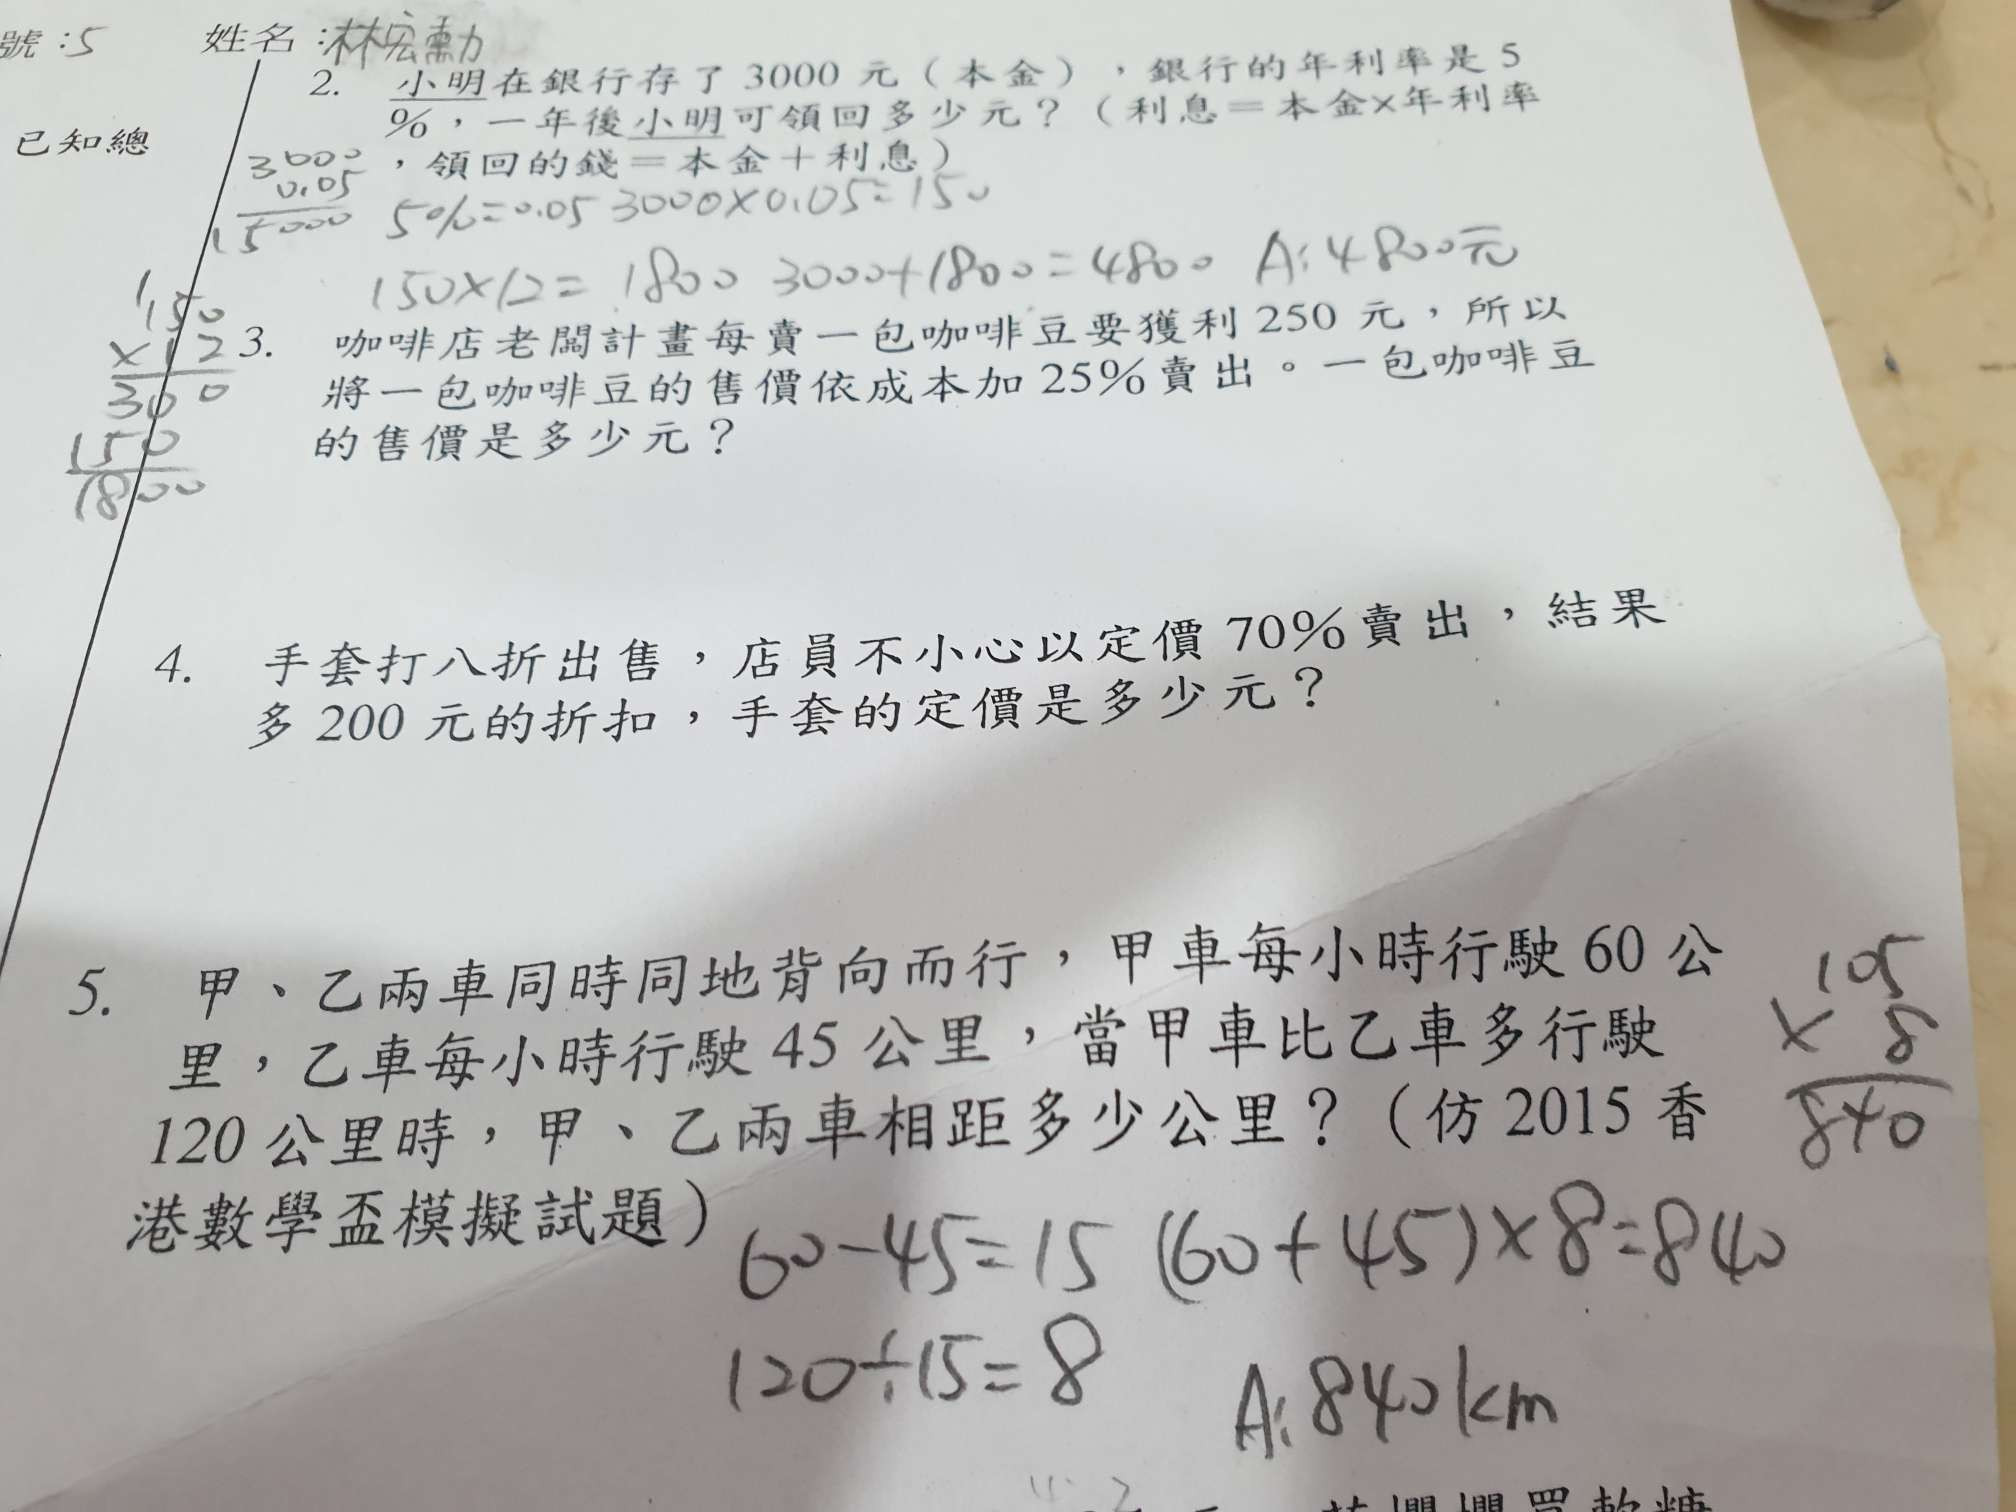 號：5 姓名：林宏勳
2. 小明在銀行存了3000元（本金），銀行的年利率是5
%，一年後小明可領回多少元？（利息＝本金×年利率
，領回的錢＝本金＋利息）
已知總
3000
0.05
15000
5%=0.05 3000×0.05=150
150×12=1800 3000+1800=4800 A:4800元
150
×12
300
150
1800
3. 咖啡店老闆計畫每賣一包咖啡豆要獲利250元，所以
將一包咖啡豆的售價依成本加25%賣出。一包咖啡豆
的售價是多少元？
4. 手套打八折出售，店員不小心以定價70%賣出，結果
多200元的折扣，手套的定價是多少元？
5. 甲、乙兩車同時同地背向而行，甲車每小時行駛60公
里，乙車每小時行駛45公里，當甲車比乙車多行駛
120公里時，甲、乙兩車相距多少公里？（仿2015香
港數學盃模擬試題）
105
× 8
840
60-45=15 (60+45)×8=840
120÷15=8
A:840km